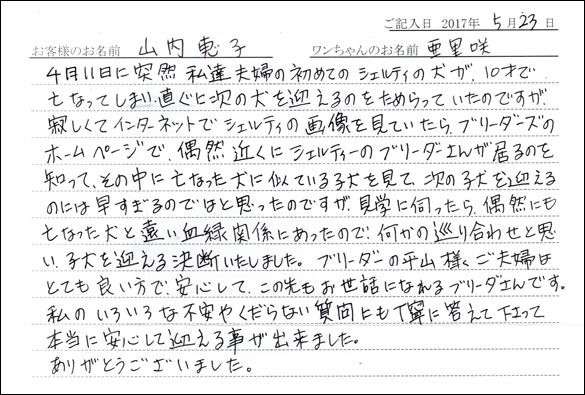 ご記入日 2017年 5月23日
お客様のお名前 山内 恵子 ワンちゃんのお名前 亜里咲
4月11日に突然 私達夫婦の初めての シェルティの犬が、10才で
亡なってしまい、直ぐに次の犬を迎えるのをためらっていたのですが、
寂しくてインターネットで シェルティの画像を見ていたら、ブリーダーズの
ホームページで、偶然 近くに シェルティーの ブリーダーさんが 居るのを
知って、その中に 亡なった犬に似ている子犬を見て、次の子犬を迎える
のには 早すぎるのではと思ったのですが、見学に伺ったら、偶然にも
亡なった犬と 遠い血縁関係にあったので、何かの巡り合わせと思
い、子犬を迎える決断いたしました。 ブリーダーの平山様ご夫婦は
とても 良い方で、安心して、この先も お世話になれる ブリーダーさんです。
私の いろいろな不安や くだらない 質問にも 丁寧に答えて下さって
本当に 安心して 迎える事が出来ました。
ありがとうございました。